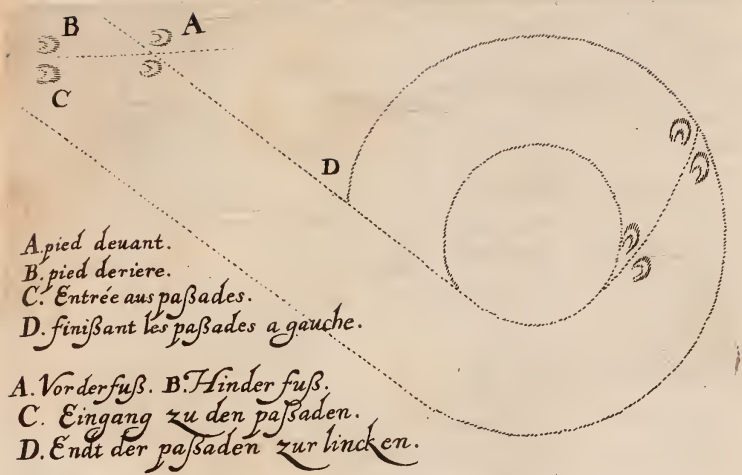 B A
C
D
A. pied deuant.
B. pied deriere.
C. Entrée aus paßades.
D. finißant les paßades a gauche.
A. Vorderfuß. B. Hinder fuß.
C. Eingang zu den paßaden.
D. Endt der paßaden zur lincken.